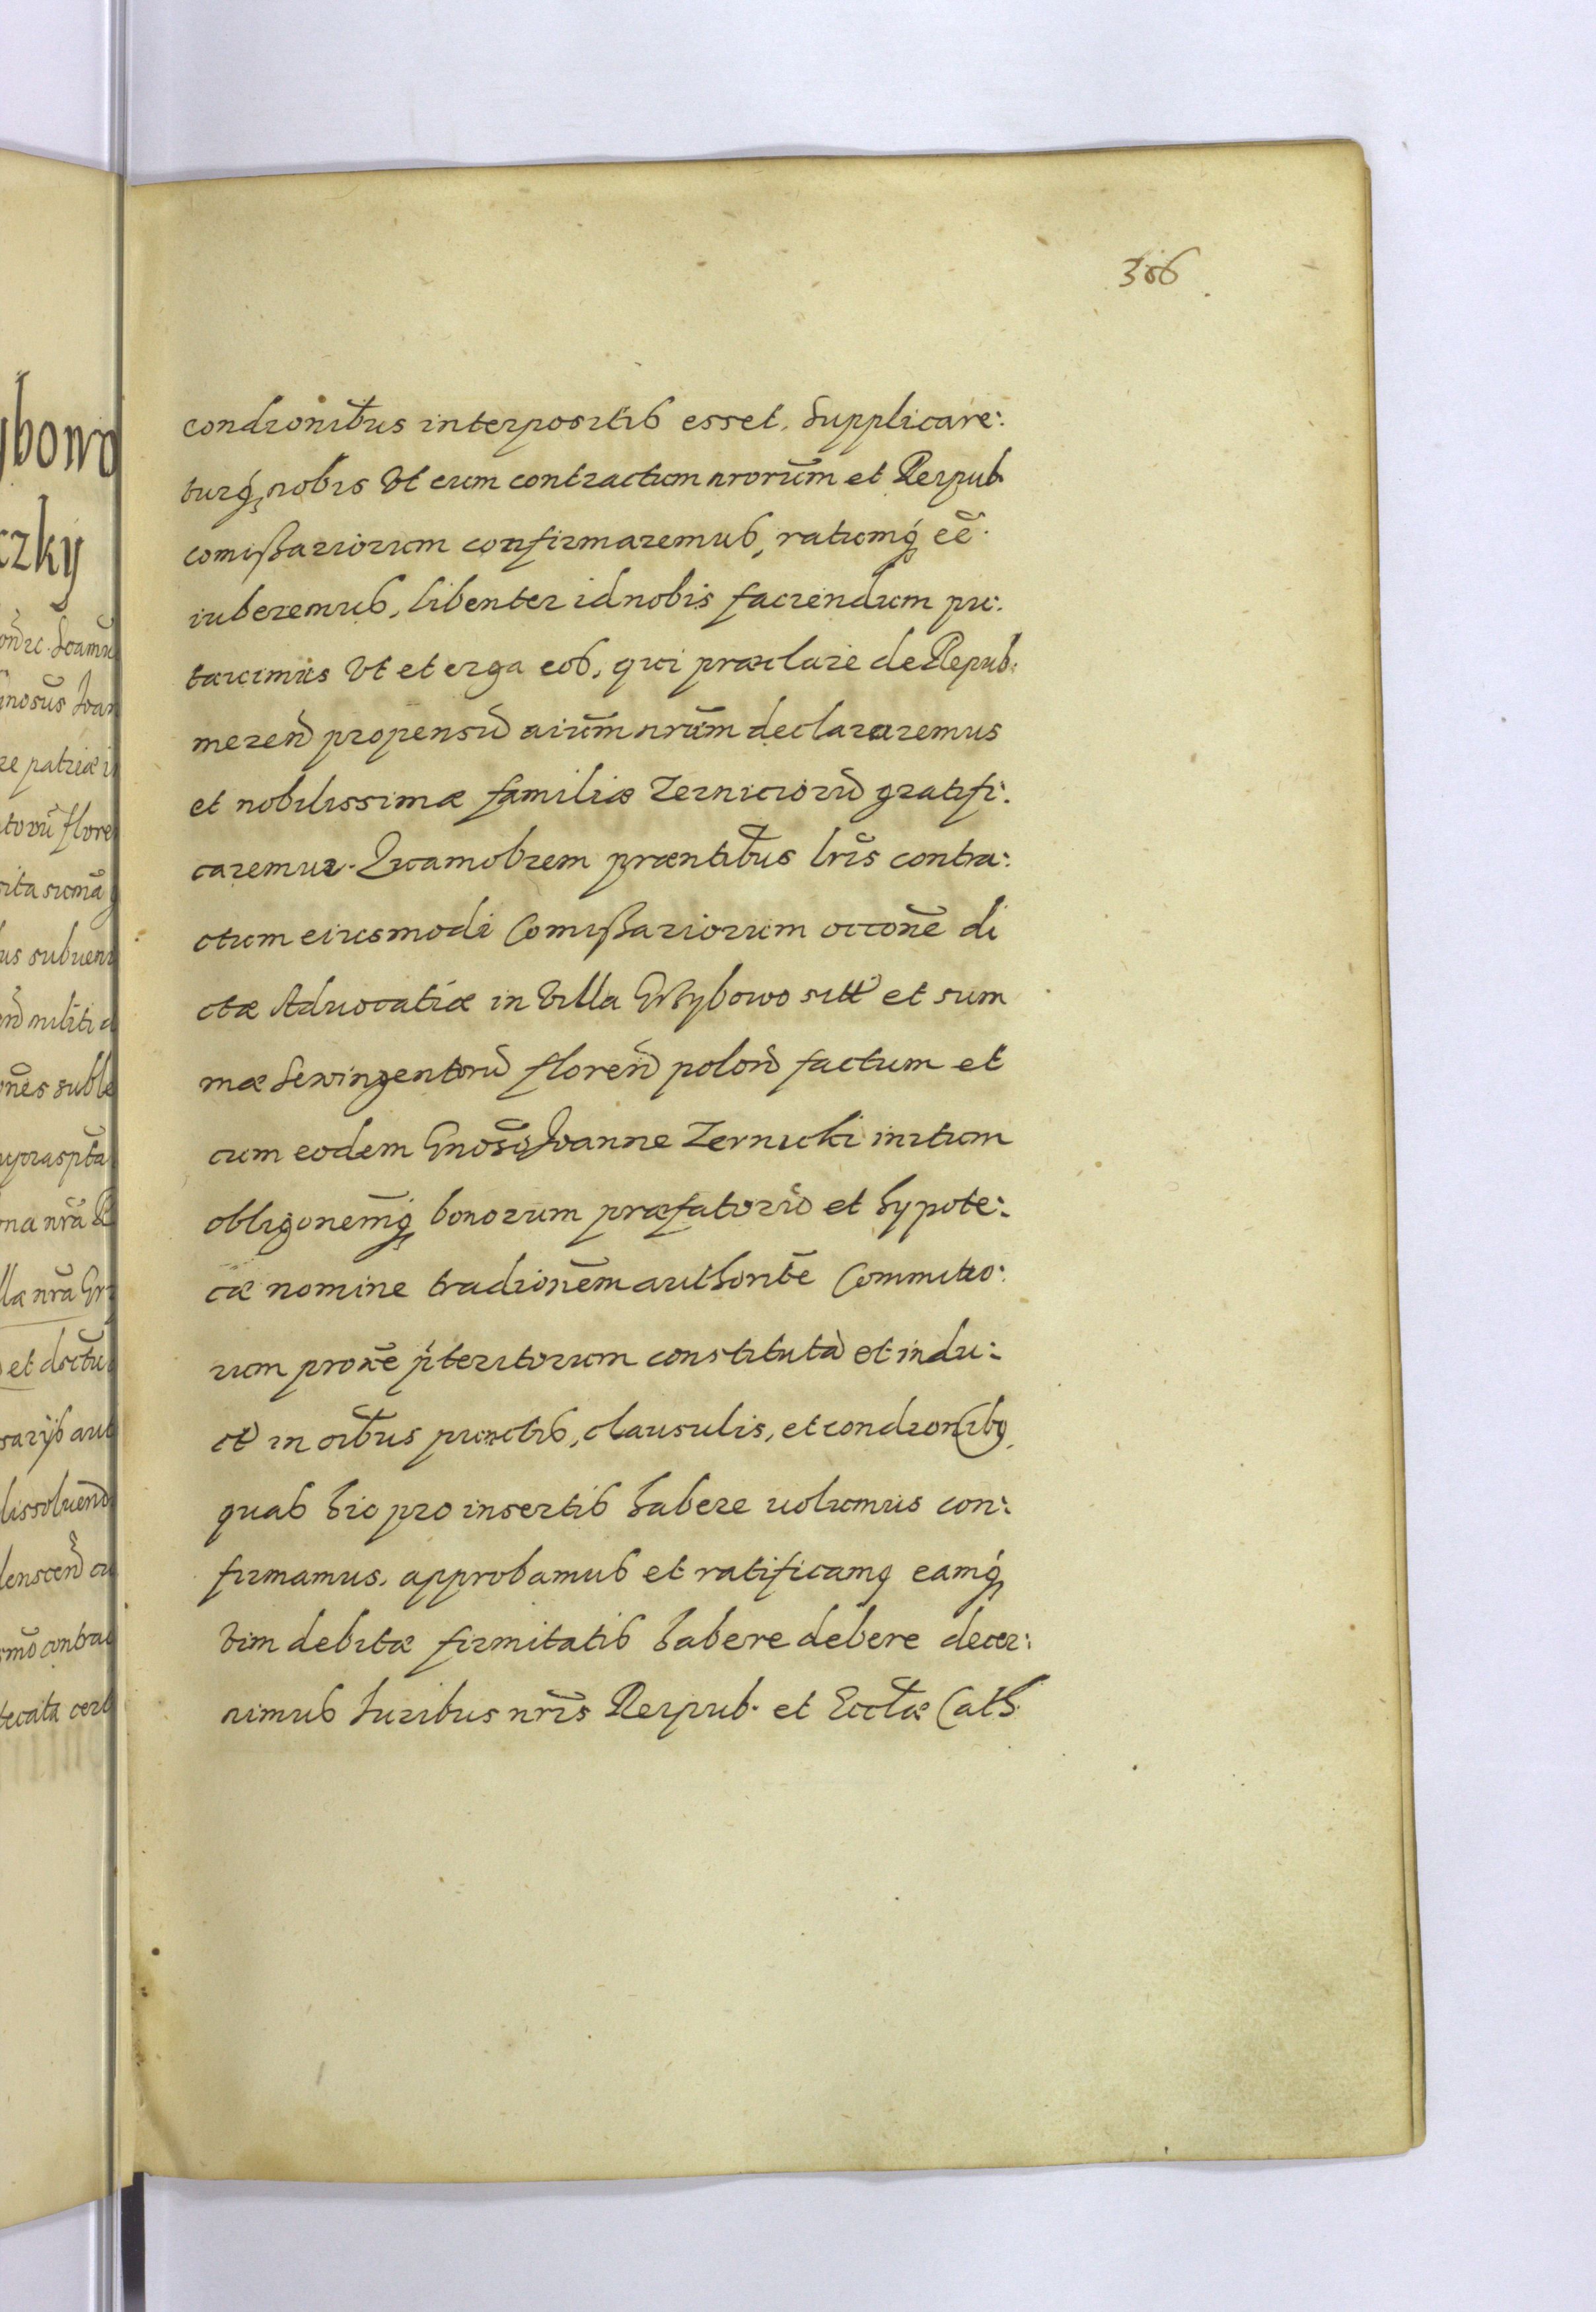 306
condionibus interpositis esset. Supplicare:
turq́ nobis Vt eum contractum nrorum̃ et Reipub.
comißariorum confirmaremus, ratumq́ eẽ.
iuberemus, libenter id nobis faciendum pu:
tauimus Vt et erga eos, qui præclare de Repub:
meren̄ propensū aium̃ nrum̃ declararemus
et nobilissimæ familiæ Zerniciorū gratifi:
caremur. Quamobrem præntibus lris̃ contra:
ctum eiusmodi Comißariorum occone̅ di
ctæ Aduocatiæ in Villa Grzybowo sitt et sum
mæ Sexingentorū floren̄ polon̄ factum et
cum eodem Gnoso̅ Joanne Zernicki initum
obligonemq́ bonorum præfatorū et hypote:
cæ nomine tradionem̃ authoritẽ Commitio:
rum proxẽ p̃teritorum constituta et indu:
ct in oibus̃ punctis, clausulis, et condionibq
quas hic pro insertis habere uolumus con:
firmamus, approbamus et ratificamq eamq́
Vim debitæ firmitatis habere debere decer:
nimus Iuribus nris̃ Reipub. et Ecclæ Cath.
ybowo
czky
Joann
inosus̃ Joan
re patriæ i
torū flore
sita suma̅
us subueni
militi
ones̃ suble
na nra̅ R
lla nra̅ Grz
et doctu
dissoluend
smo̅ contrac
tecata cert